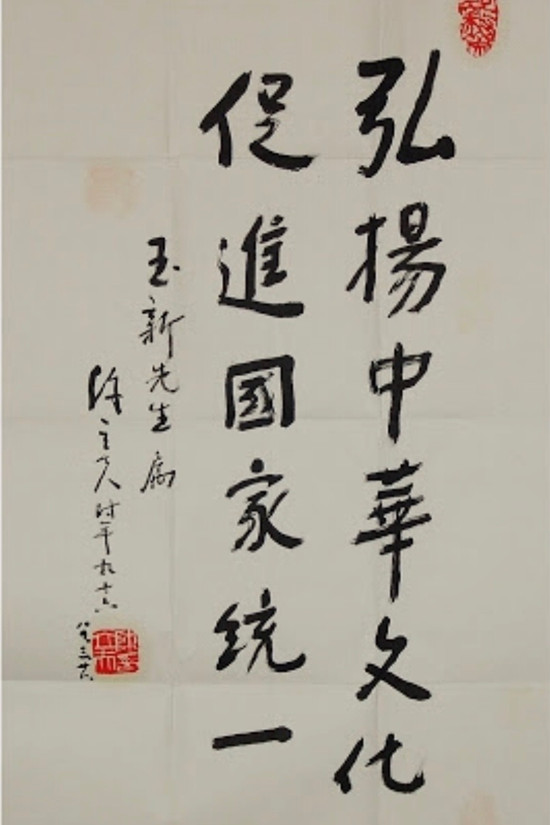 弘揚中華文化
促進國家統一
玉新先生属
陳立夫时年九十六